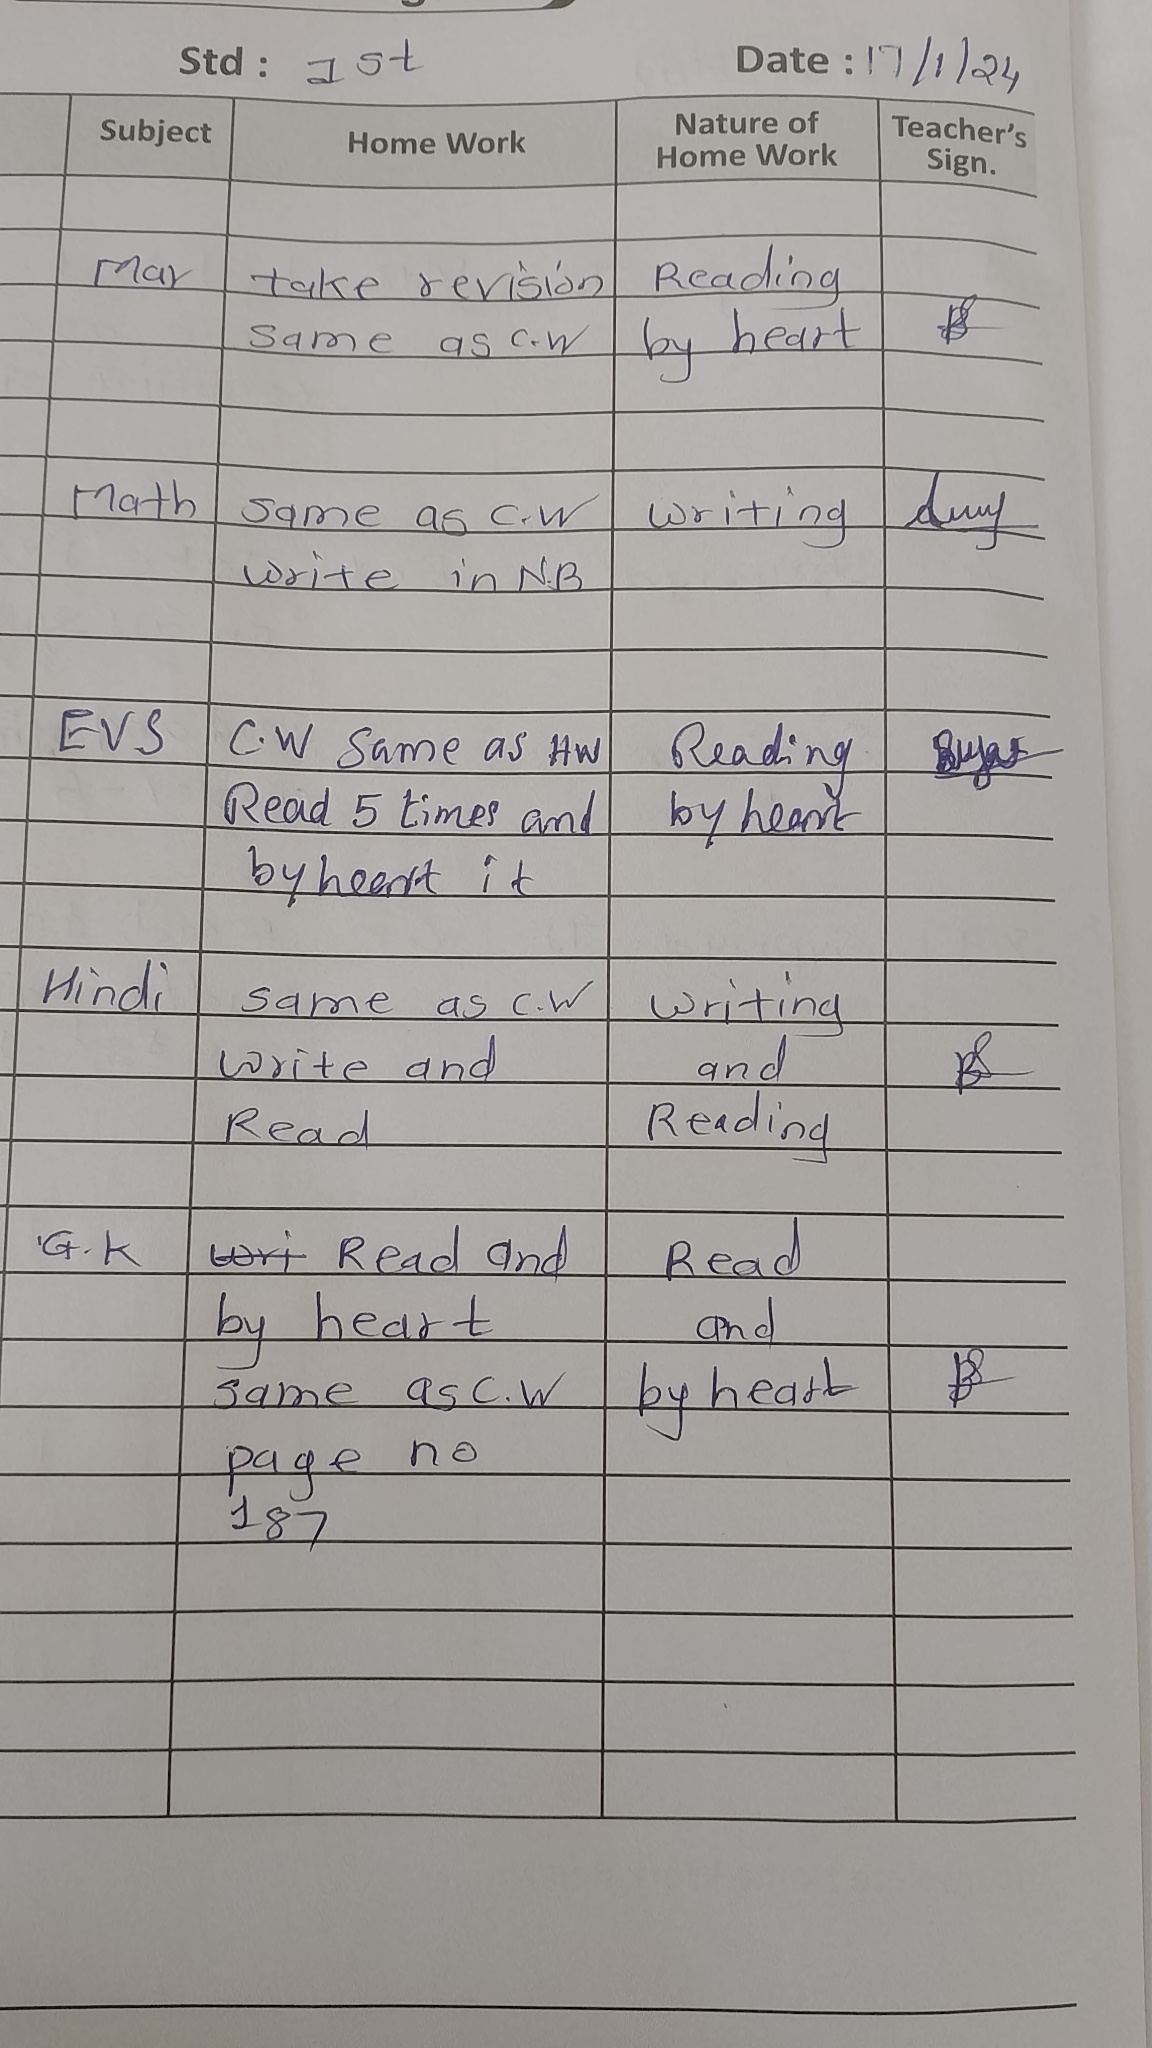 Std : 1st Date : 17/1/24
Subject Home Work Nature of Home Work Teacher's Sign.
Mar take revision Reading
same as C.W by heart
Math same as C.W writing
write in N.B
EVS C.W Same as HW Reading
Read 5 times and by heart
by heart it
Hindi same as C.W writing
write and and
Read Reading
G.K Read and Read
by heart and
same as C.W by heart
page no
187